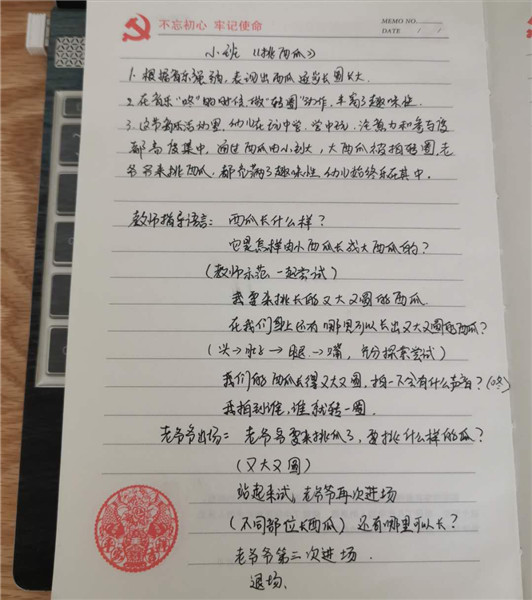 不忘初心 牢记使命
MEMO NO.
DATE / /
小班 《挑西瓜》
1. 根据音乐强弱,表现出西瓜逐步长圆长大.
2. 在音乐“咚”的时候,做“转圈”动作,丰富了趣味性.
3. 这节音乐活动里,幼儿在玩中学,学中玩,注意力和参与度
都高度集中,通过西瓜由小到大,大西瓜被拍转圈,老
爷爷来挑西瓜,都充满了趣味性,幼儿始终乐在其中.
教师指导语言: 西瓜长什么样?
它是怎样由小西瓜长成大西瓜的?
(教师示范 一起尝试)
我要来挑长的又大又圆的西瓜
在我们身上还有哪里可以长出又大又圆的西瓜?
(头→肚子→眼→嘴, 充分探索尝试)
我们的西瓜长得又大又圆,拍一下会有什么声音?(咚)
我拍到谁,谁就转一圈.
老爷爷出场: 老爷爷要来挑瓜了,要挑什么样的瓜?
(又大又圆)
站起来试,老爷爷再次进场
(不同部位长西瓜) 还有哪里可以长?
老爷爷第三次进场.
退场.